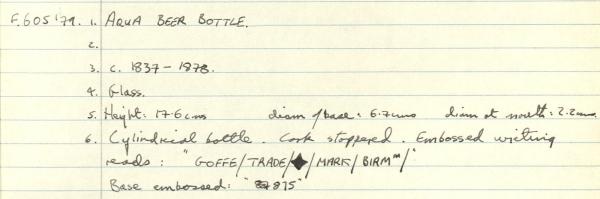 F.605'79. 1. AQUA BEER BOTTLE.
2.
3. c. 1837 - 1878.
4. Glass.
5. Height: 17.6cms diam of base: 6.7cms diam at mouth: 2.2cms.
6. Cylindrical bottle. Cork stoppered. Embossed writing
reads: "GOFFE/TRADE/◆/MARK/BIRMᵐ/"
Base embossed: "875"